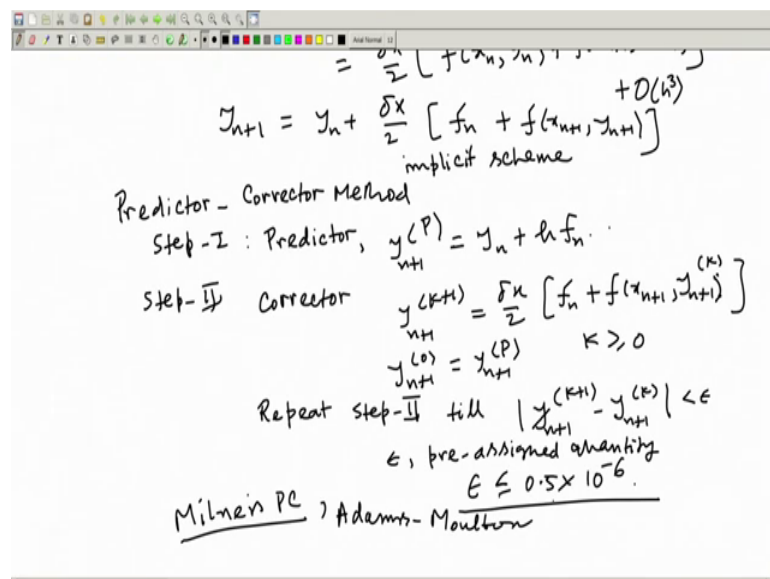 = δx/2 [ f(xn, yn) + f
+ O(h³)
y_{n+1} = y_n + δx/2 [ f_n + f(x_{n+1}, y_{n+1}) ]
implicit scheme
Predictor - Corrector Method
Step-I : Predictor, y_{n+1}^{(P)} = y_n + h f_n ..
Step-II Corrector y_{n+1}^{(K+1)} = δx/2 [ f_n + f(x_{n+1}, y_{n+1}^{(K)}) ]
y_{n+1}^{(0)} = y_{n+1}^{(P)} K ≥ 0
Repeat step-II till | y_{n+1}^{(K+1)} - y_{n+1}^{(K)} | < ε
ε, pre-assigned quantity
ε ≤ 0.5 × 10^{-6}.
Milne's PC, Adams-Moulton